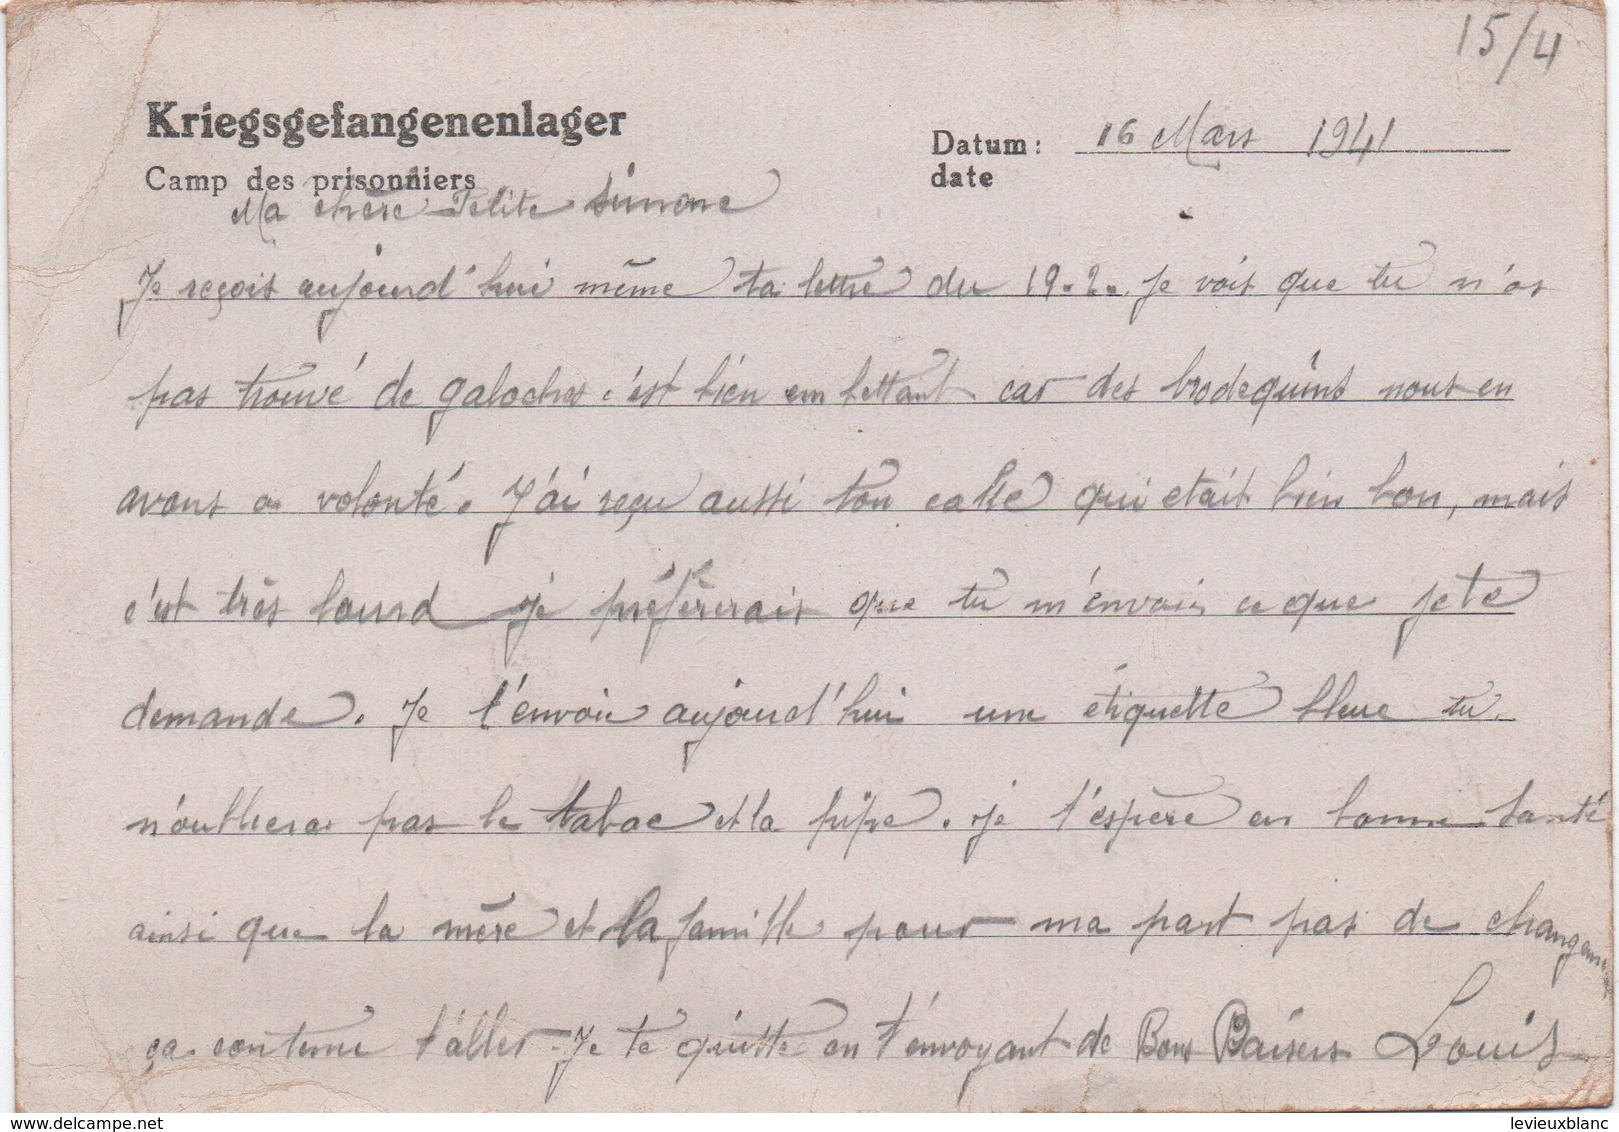 15/4
Kriegsgefangenenlager
Datum: 16 Mars 1941
Camp des prisonniers
date
Ma chère Petite Simone
Je reçois aujourd'hui même ta lettre du 19.2. je vois que tu n'as
pas trouvé de galoches c'est bien embettant car des brodequins nous en
avons a volonté. J'ai reçu aussi ton calté qui etait bien bon, mais
c'est très lourd je préfèrerais que tu m'envois ce que je te
demande. Je t'envoie aujourd'hui une étiquette bleue tu
n'oubliera pas le tabac et la pipe. je t'espère en bonne santé
ainsi que la mère et la famille pour ma part pas de changement
ça continue d'aller. Je te quitte en t'envoyant de Bons Baisers Louis
www.delcampe.net
levieuxblanc